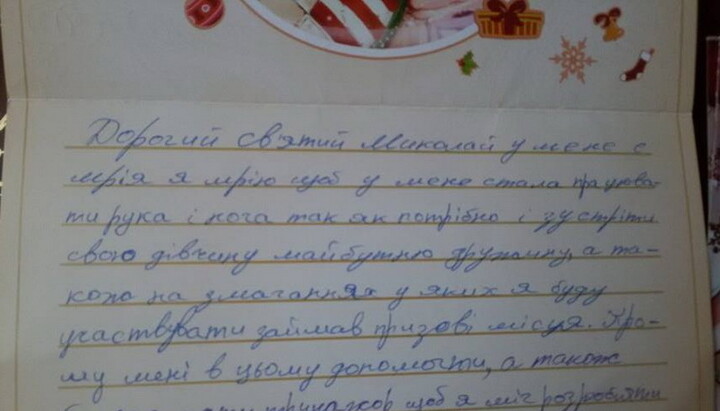 Дорогий святий Миколай у мене є
мрія я мрію щоб у мене стала працюва-
ти рука і нога так як потрібно і зустріти
свою дівчину майбутню дружину, а та-
кож на змаганнях у яких я буду
участвувати займав призові місця. Про-
шу мені в цьому допомогти, а також
тринажор щоб я міг розробляти